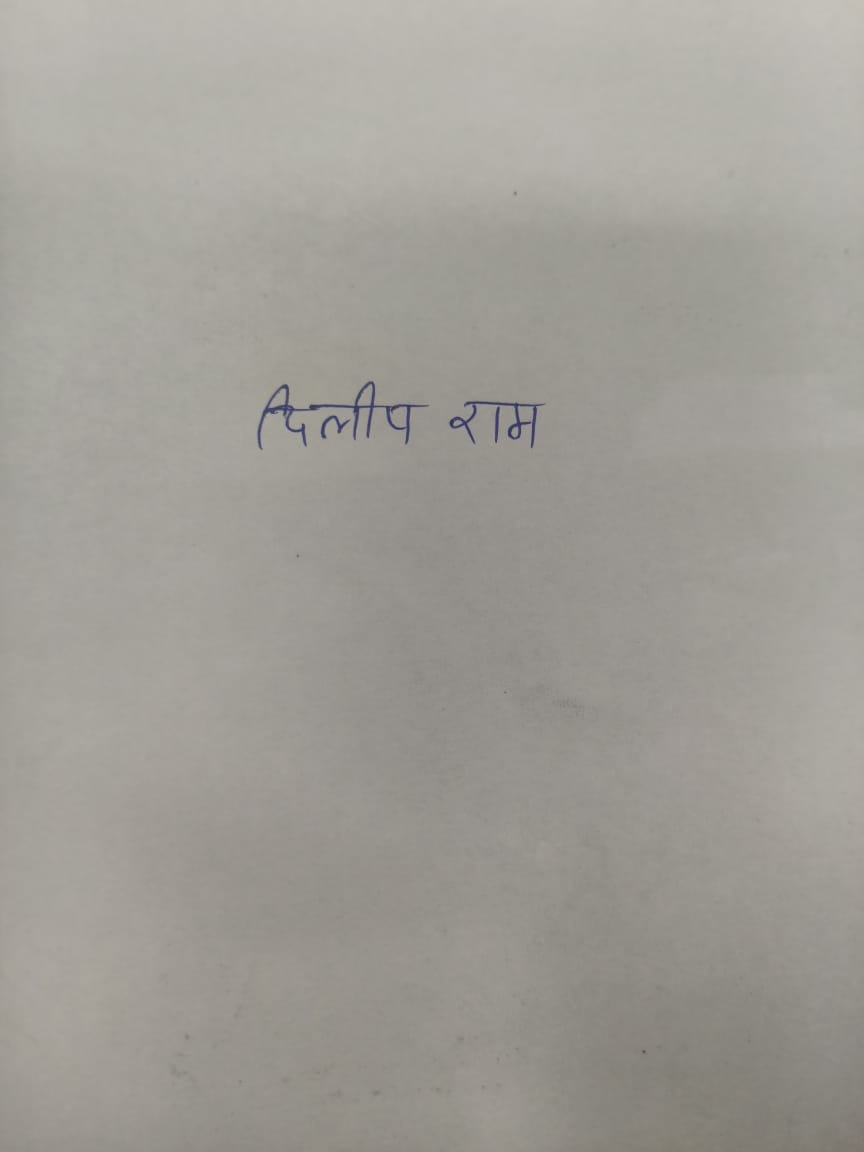 दिलीप राम